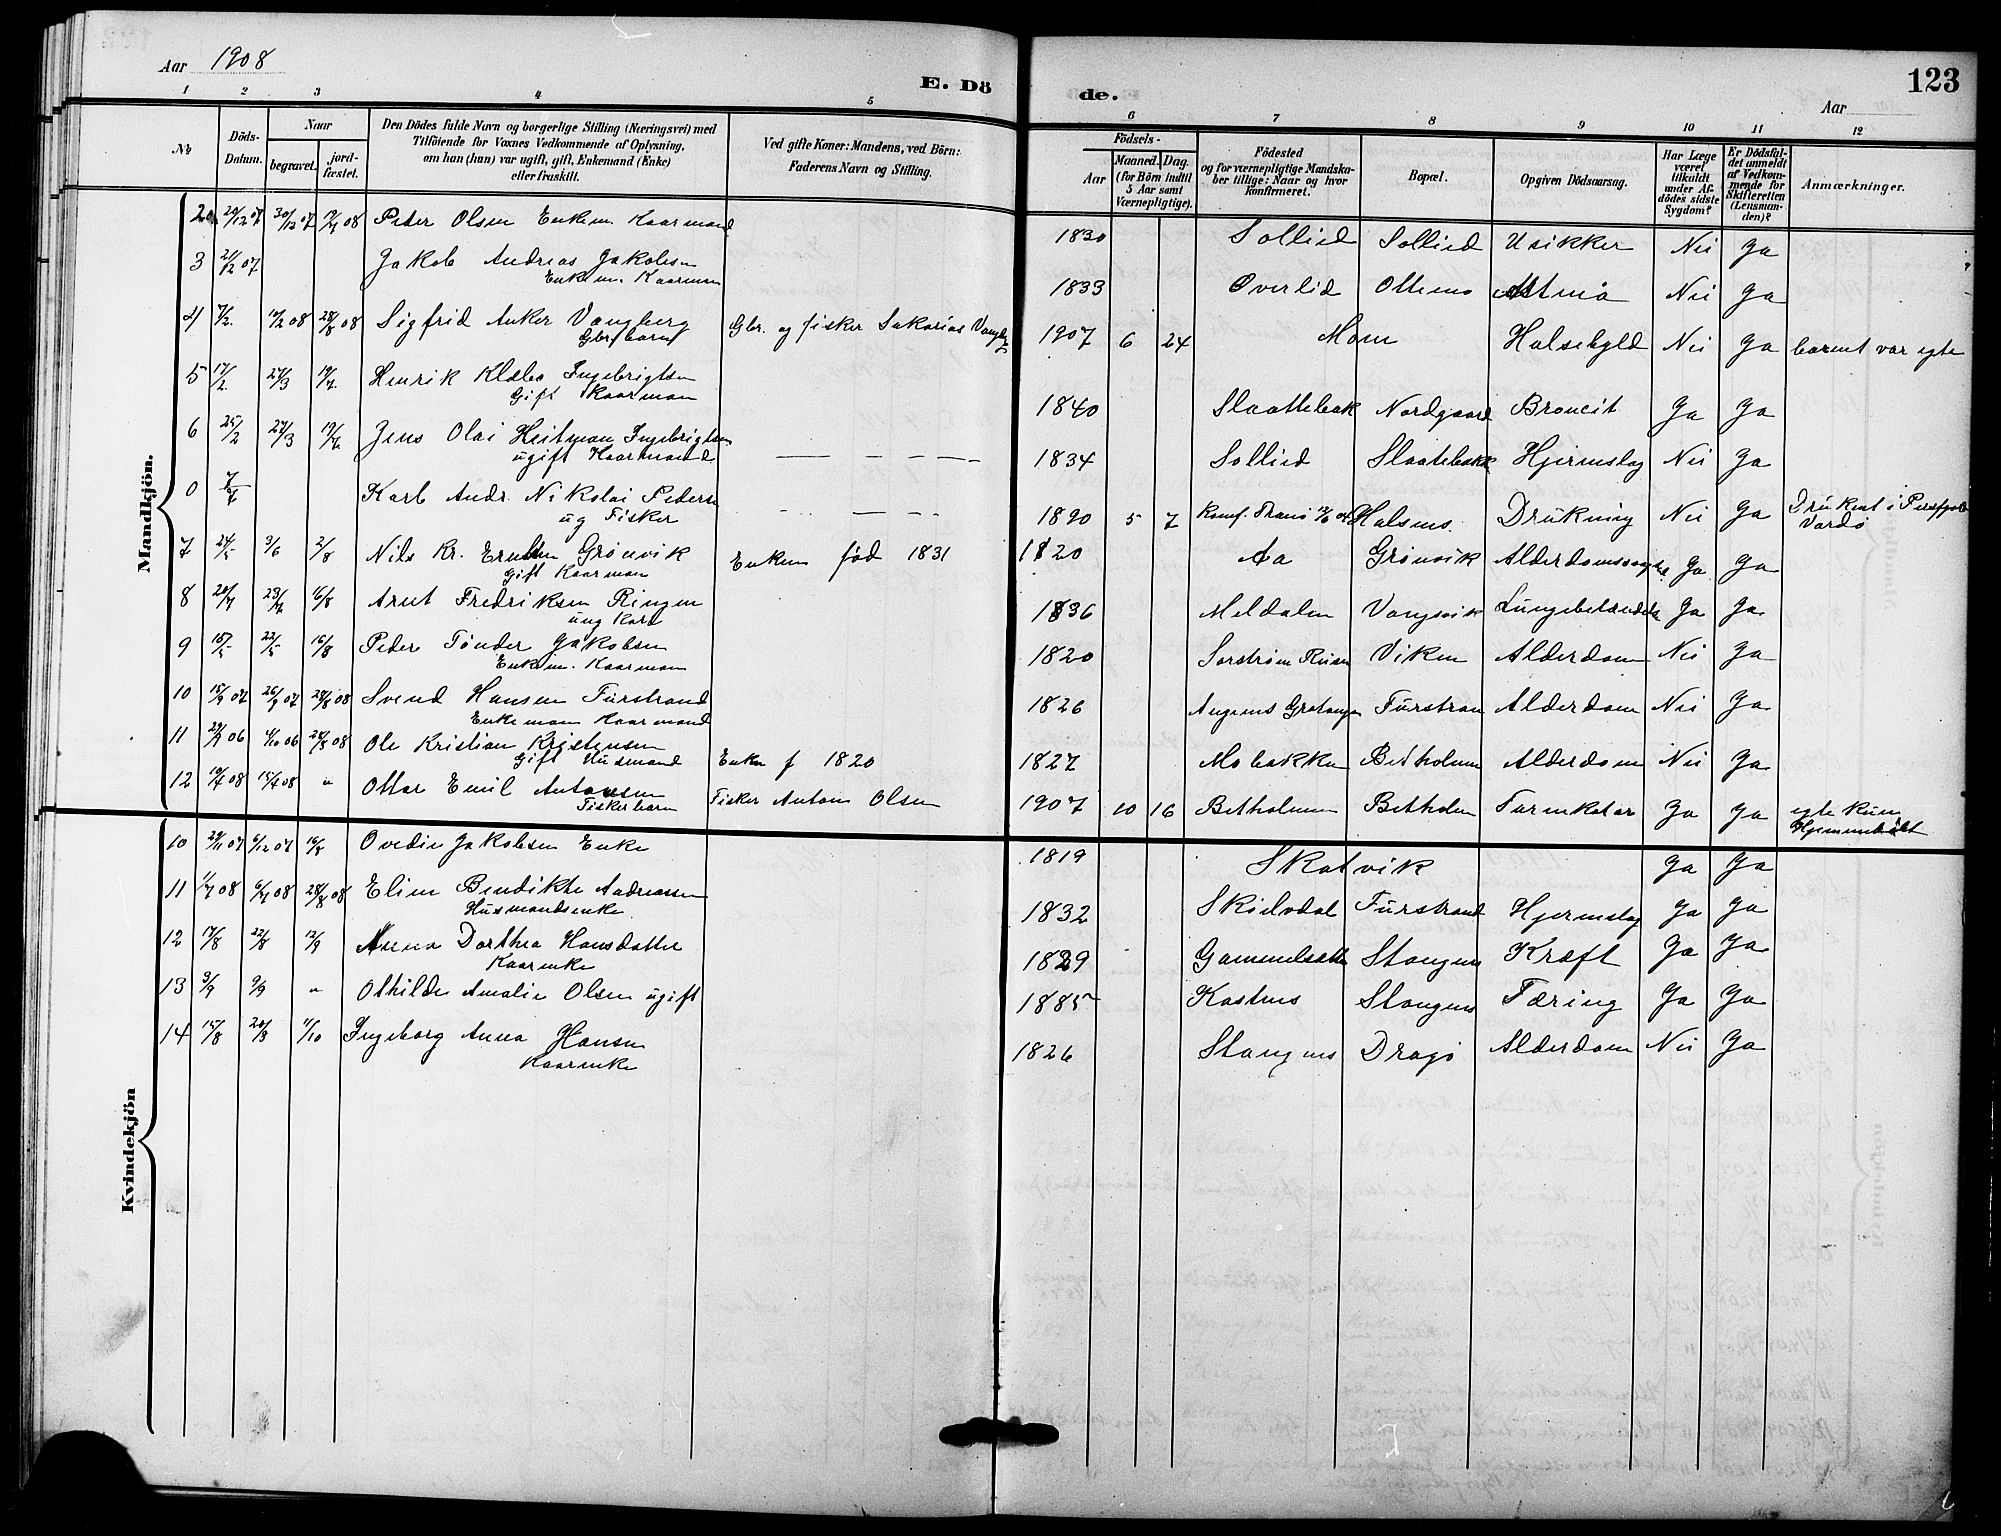 Aar 1908
E. Dö de.
123
Aar
1 2 3 4 5 6 7 8 9 10 11 12
No
Döds-Datum.
Naar
begravet.
jord-fæstet.
Den Dödes fulde Navn og borgerlige Stilling (Næringsvei) med
Tilföiende for Voxnes Vedkommende af Oplysning,
om han (hun) var ugift, gift, Enkemand (Enke)
eller fraskilt.
Ved gifte Koner: Mandens, ved Börn:
Faderens Navn og Stilling.
Födsels-
Aar
Maaned. Dag.
(for Börn indtil
5 Aar samt
Værnepligtige).
Födested
og for værnepligtige Mandska-
ber tillige: Naar og hvor
konfirmeret.
Bopæl.
Opgiven Dödsaarsag.
Har Læge
været
tilkaldt
under Af-
dödes sidste
Sygdom?
Er Dödsfal-
det anmeldt
af Vedkom-
mende for
Skifteretten
(Lensman-
den)?
Anmærkninger.
Mandkjön.
2 20/12 07 30/12 07 08 Peter Olsen Enkem. Kaarmand 1830 Sollied Sollied Usikker Nei Ja
3 21/12 07 Jakob Andreas Jakobsen
Enkem. Kaarman 1833 Overlid Ottemo Astma Nei Ja
4 7/2. 10/2 08 28/8 08 Sigfrid Anker Vangberg
Gbrfbarn Gbr. og fisker Sakarias 1907 6 24 Moen Halsebyld Nei Ja barnet var egte
5 17/2. 27/3 19/7. Henrik Klæbo Ingebrigtsen
Gift Kaarman 1840 Slaattebak Nordgaard Broncit Ja Ja
6 25/2 27/3 19/7. Jens Olai Heitman Ingebrigtsen
ugift Kaarmand — — — — 1834 Sollied Slaatebakk Hjerneslag Nei Ja
0 Karl Andr Nikolai Pedersen
ug Fisker — — — 1890 5 7 Konf. Tranö Halsnes. Drukning Nei Ja Druknet i
Vardö
7 24/5 3/6 2/8 Nils Kr. Grönvik
Gift Kaarman Enken född 1831 1820 Aa Grönvik Alderdomssvaghed Ja Ja
8 16/8 Arnt Fredriksen Ringen
ung Karl 1836 Meldalen Vangsvik Lungebetændelse Ja Ja
9 15/5 22/5 16/8 Peder Tönder Jakobsen
Enkem. Kaarman 1820 Viken Alderdom Nei Ja
10 15/9 07 26/9 07 28/8 08 Svend Hansen Furstrand
Enkeman Kaarmand 1826 Furstran Alderdom Nei Ja
11 29/9 06 4/10 06 28/8 08 Ole Kristian Kristensen
Gift Husmand Enken f 1820 1827 Mobakken Betholmen Alderdom Nei Ja
12 10/4 08 15/4 08 " Ottar Emil Antonsen
Fiskerbarn Fisker Anton Olsen 1907 10 16 Betholmen Betholm Tarmkatar Ja Ja egte kun
Hjemmedöbt
Kvindekjön
10 29/11 07 6/12 07 16/8 Ovedie Jakobsen Enke 1819 Skatvik Ja Ja
11 08 08 28/8 08 Eline Bendikte Andreassen
Husmandsenke 1832 Skölvdal Furstrand Hjerneslag Ja Ja
12 17/8 22/8 12/9 Anna Dorthea Hansdatter
Kaarenke 1829 Gammelsetter Stangnes Kræft Ja Ja
13 3/9 9/9 " Othilde Amalie Olsen ugift 1885 Kastnes Stangnes Tæring Ja Ja
14 15/8 20/9 11/10 Ingeborg Anna Hansen
Kaarenke 1826 Stangnes Dragö Alderdom Nei Ja